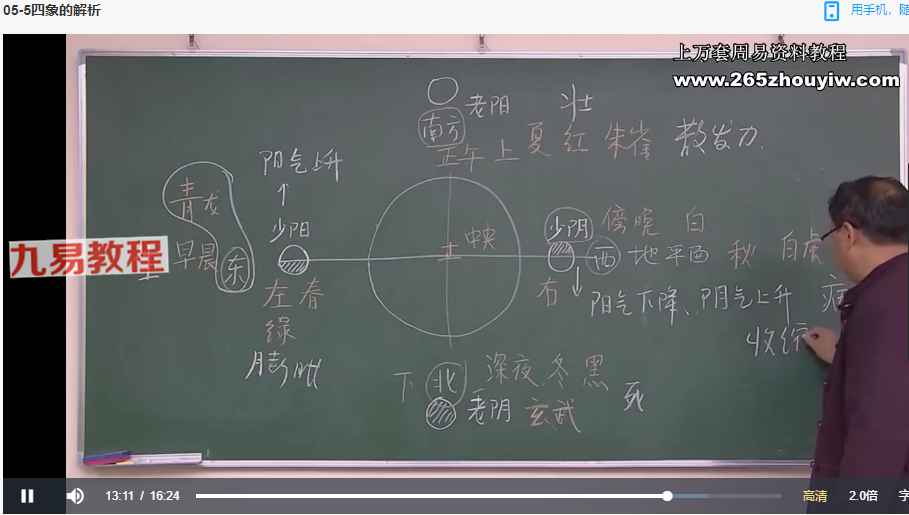 05-5四象的解析
用手机，随
上万套周易资料教程
www.265zhouyiw.com
老阳 壮
南方
正午 上 夏 红 朱雀 散发力
阳气上升
青龙
少阳
早晨 东
左 春
绿
膨胀
中央
土
少阴 傍晚 白
西 地平西 秋 白虎
右
阳气下降、阴气上升
收缩
下 北 深夜、冬 黑
老阴 玄武 死
九易教程
13:11 / 16:24
高清 2.0倍 字